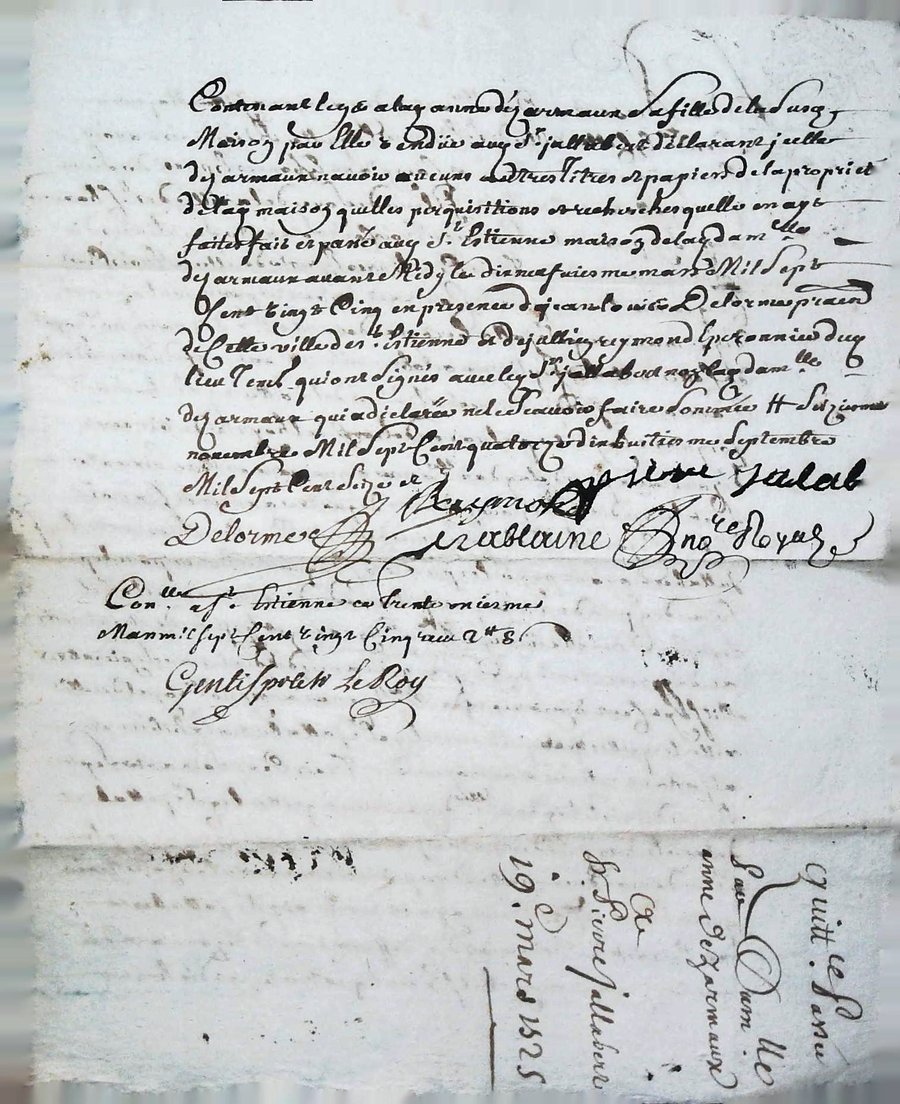 Contenant legs a lad anne dezarmaux sa fille de la susd
Maison par Elle vendue aud Sr jallabert declarant jcelle
dezarmaux navoir aucuns autres Titres et papiers de la propriet
de lad maison quelles perquisitions et recherches quelle en aye
faites fait et passé aud St Estienne maison de lad damlle
dezarmaux avant Midy le dixneufviesme mars Mil Sept
Cent vingt Cinq en presence de jean louis Delorme pratt
de Cette ville de St Estienne et de jullien reymond Esperonnier dud
lieu Temt qui ont Signés avec led Sr jallabert non lad damlle
dezarmaux qui a declaré ne le Scavoir faire Sommée # Seiziesme
novembre Mil Sept Cent quatorze dixhuitiesme Septembre
Mil Sept Cent Seize et
Reymond pierre Jalab
Delorme nore Royal
Conlle a St Estienne ce trente uniesme
Mars mil sept Cent vingt Cinq receu 2tt 8
Le Roy
quittce Passé
Par Damlle
anne deZarmaux
a
Sr Pierre Jallabert
19. mars 1725